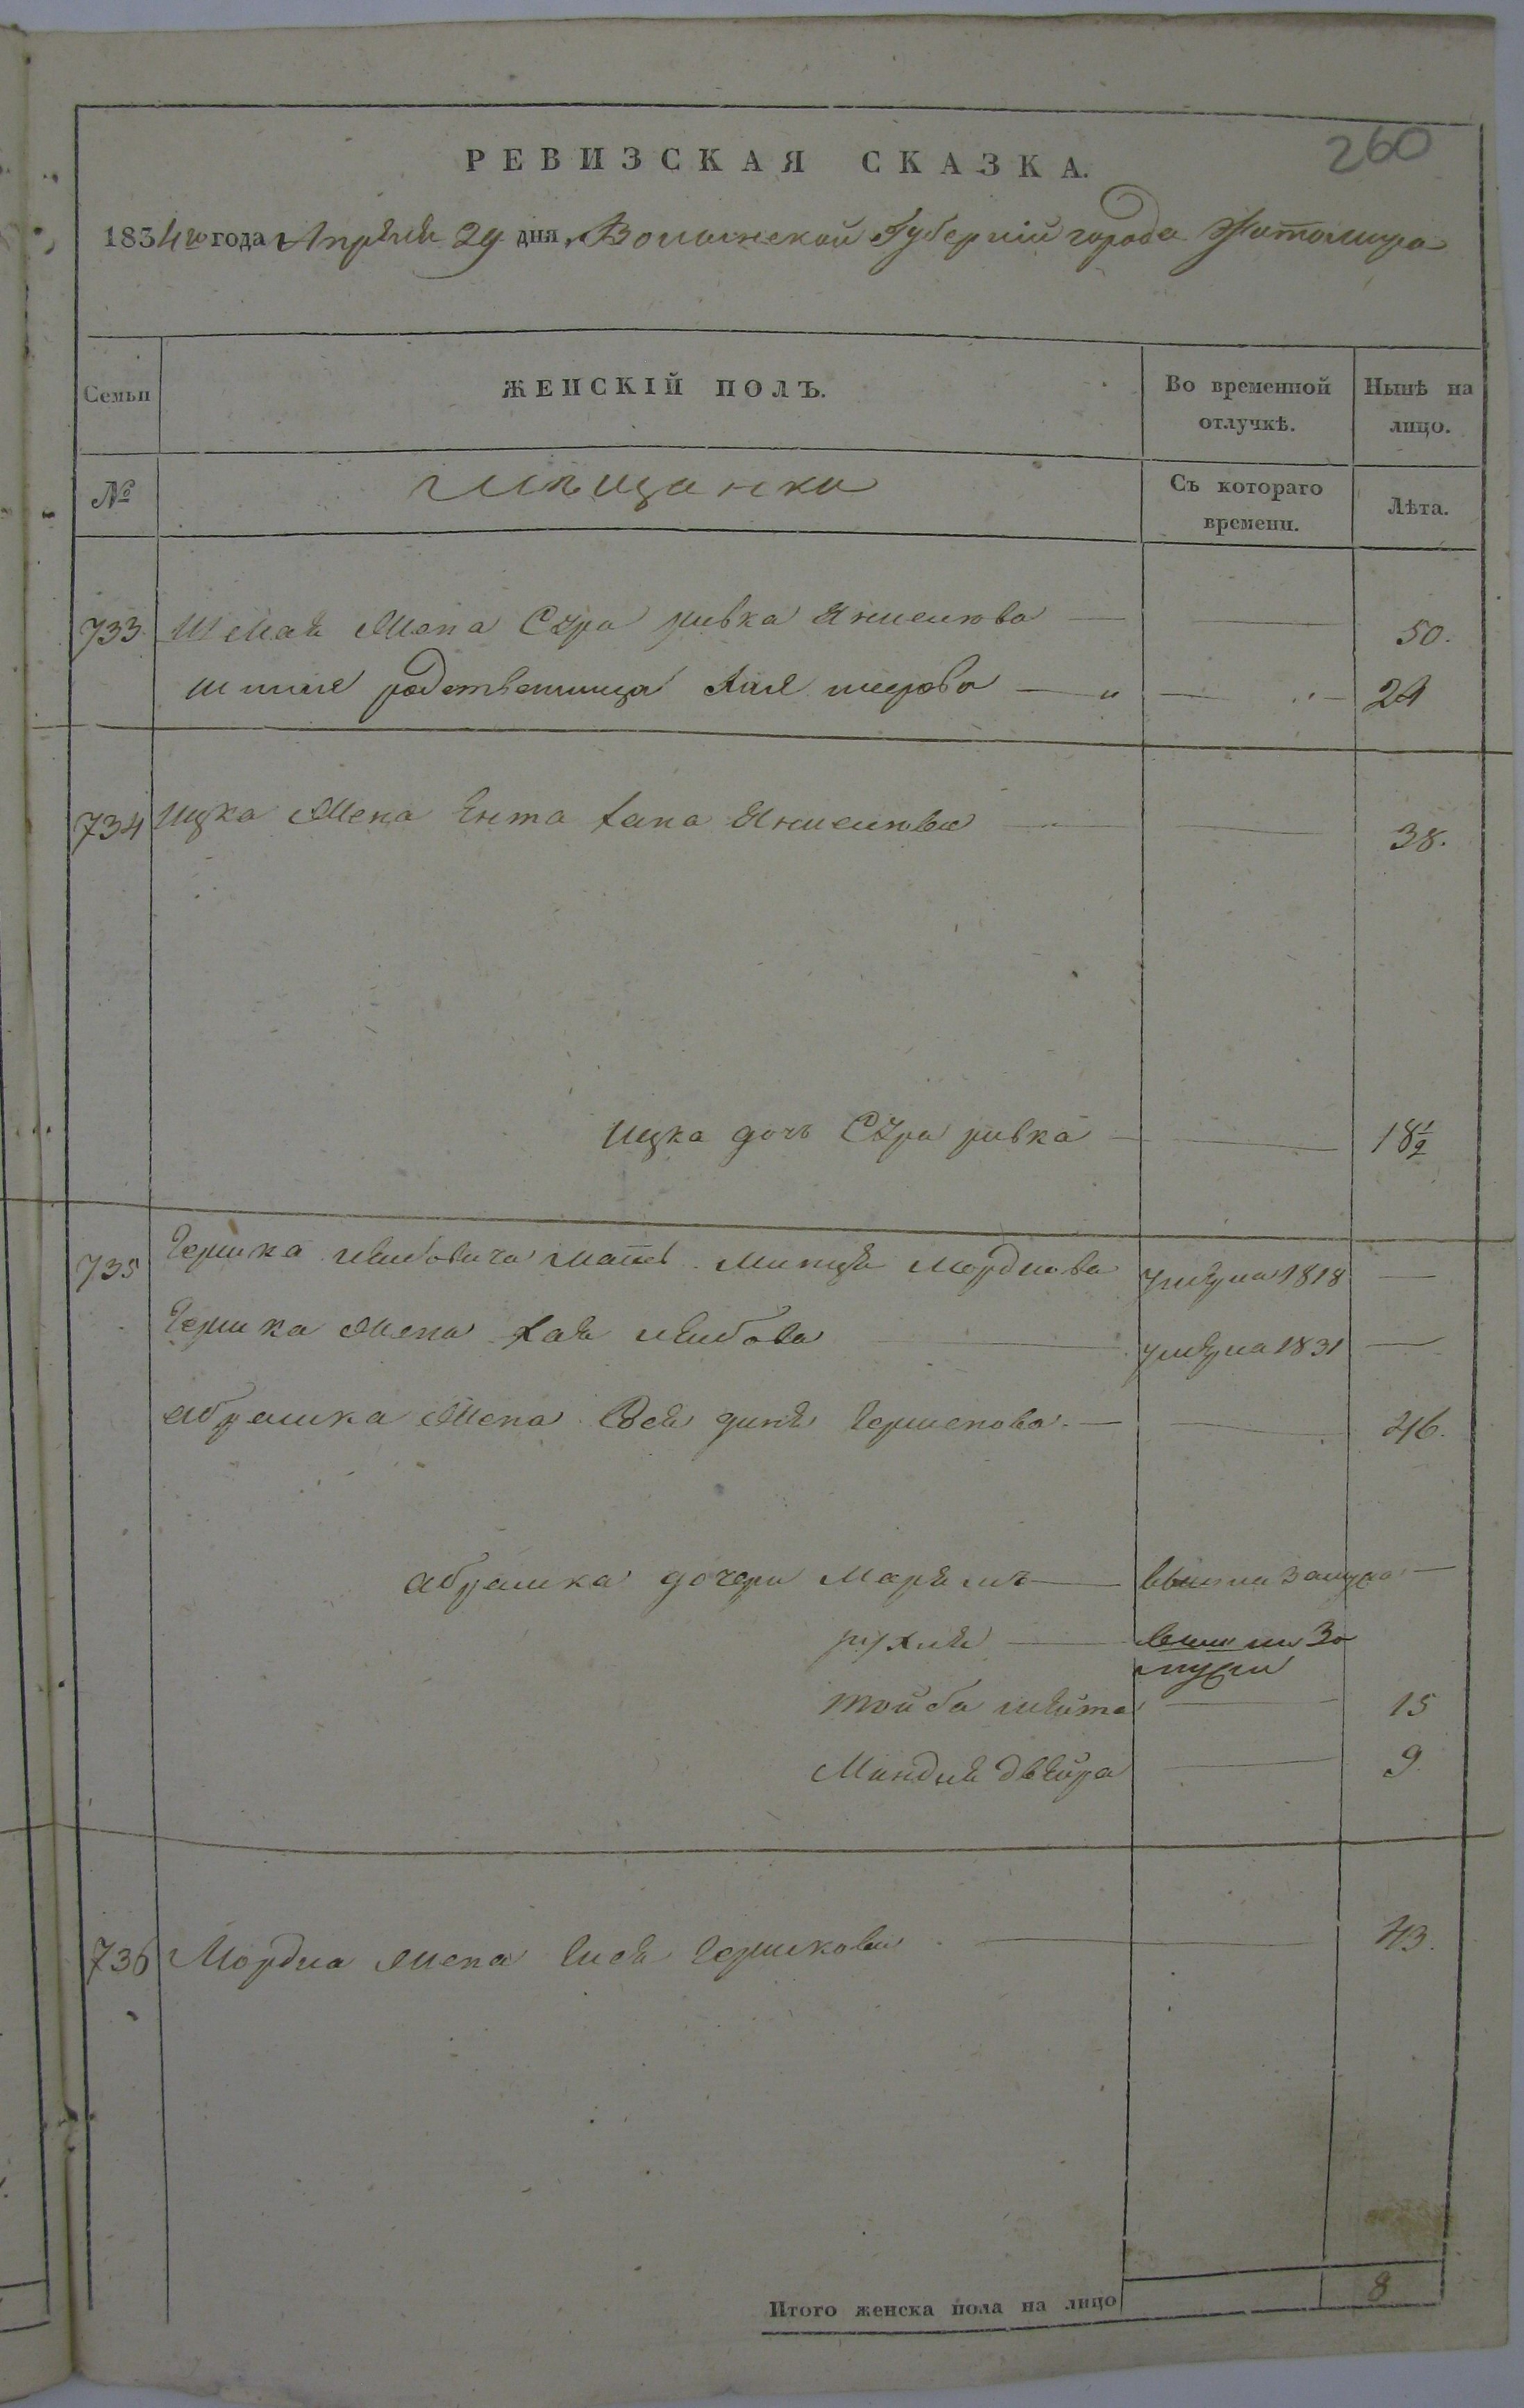 260
РЕВИЗСКАЯ СКАЗКА.
1834го года Апреля 29 дня, Волынской Губерніи города Житомира
Семьи
ЖЕНСКІЙ ПОЛЪ.
Во временной отлучкѣ.
Нынѣ на лицо.
№
мѣщанки
Съ котораго времени.
Лѣта.
733 Жена Сура ривка 50.
родственница 24
734 Ицка Жена Ента хана 38.
Ицка дочь Сура ривка 18½
735 Гершка мать умерла 1818 —
Гершка Жена хая лейбова умерла 1831 —
абрамка Жена 46.
абрамка дочери вышла замуж —
рухля вышла за
мужъ
тойба 15
Миндля двейра 9
736 Мордка Жена Гершкова 43.
Итого женска пола на лицо 8